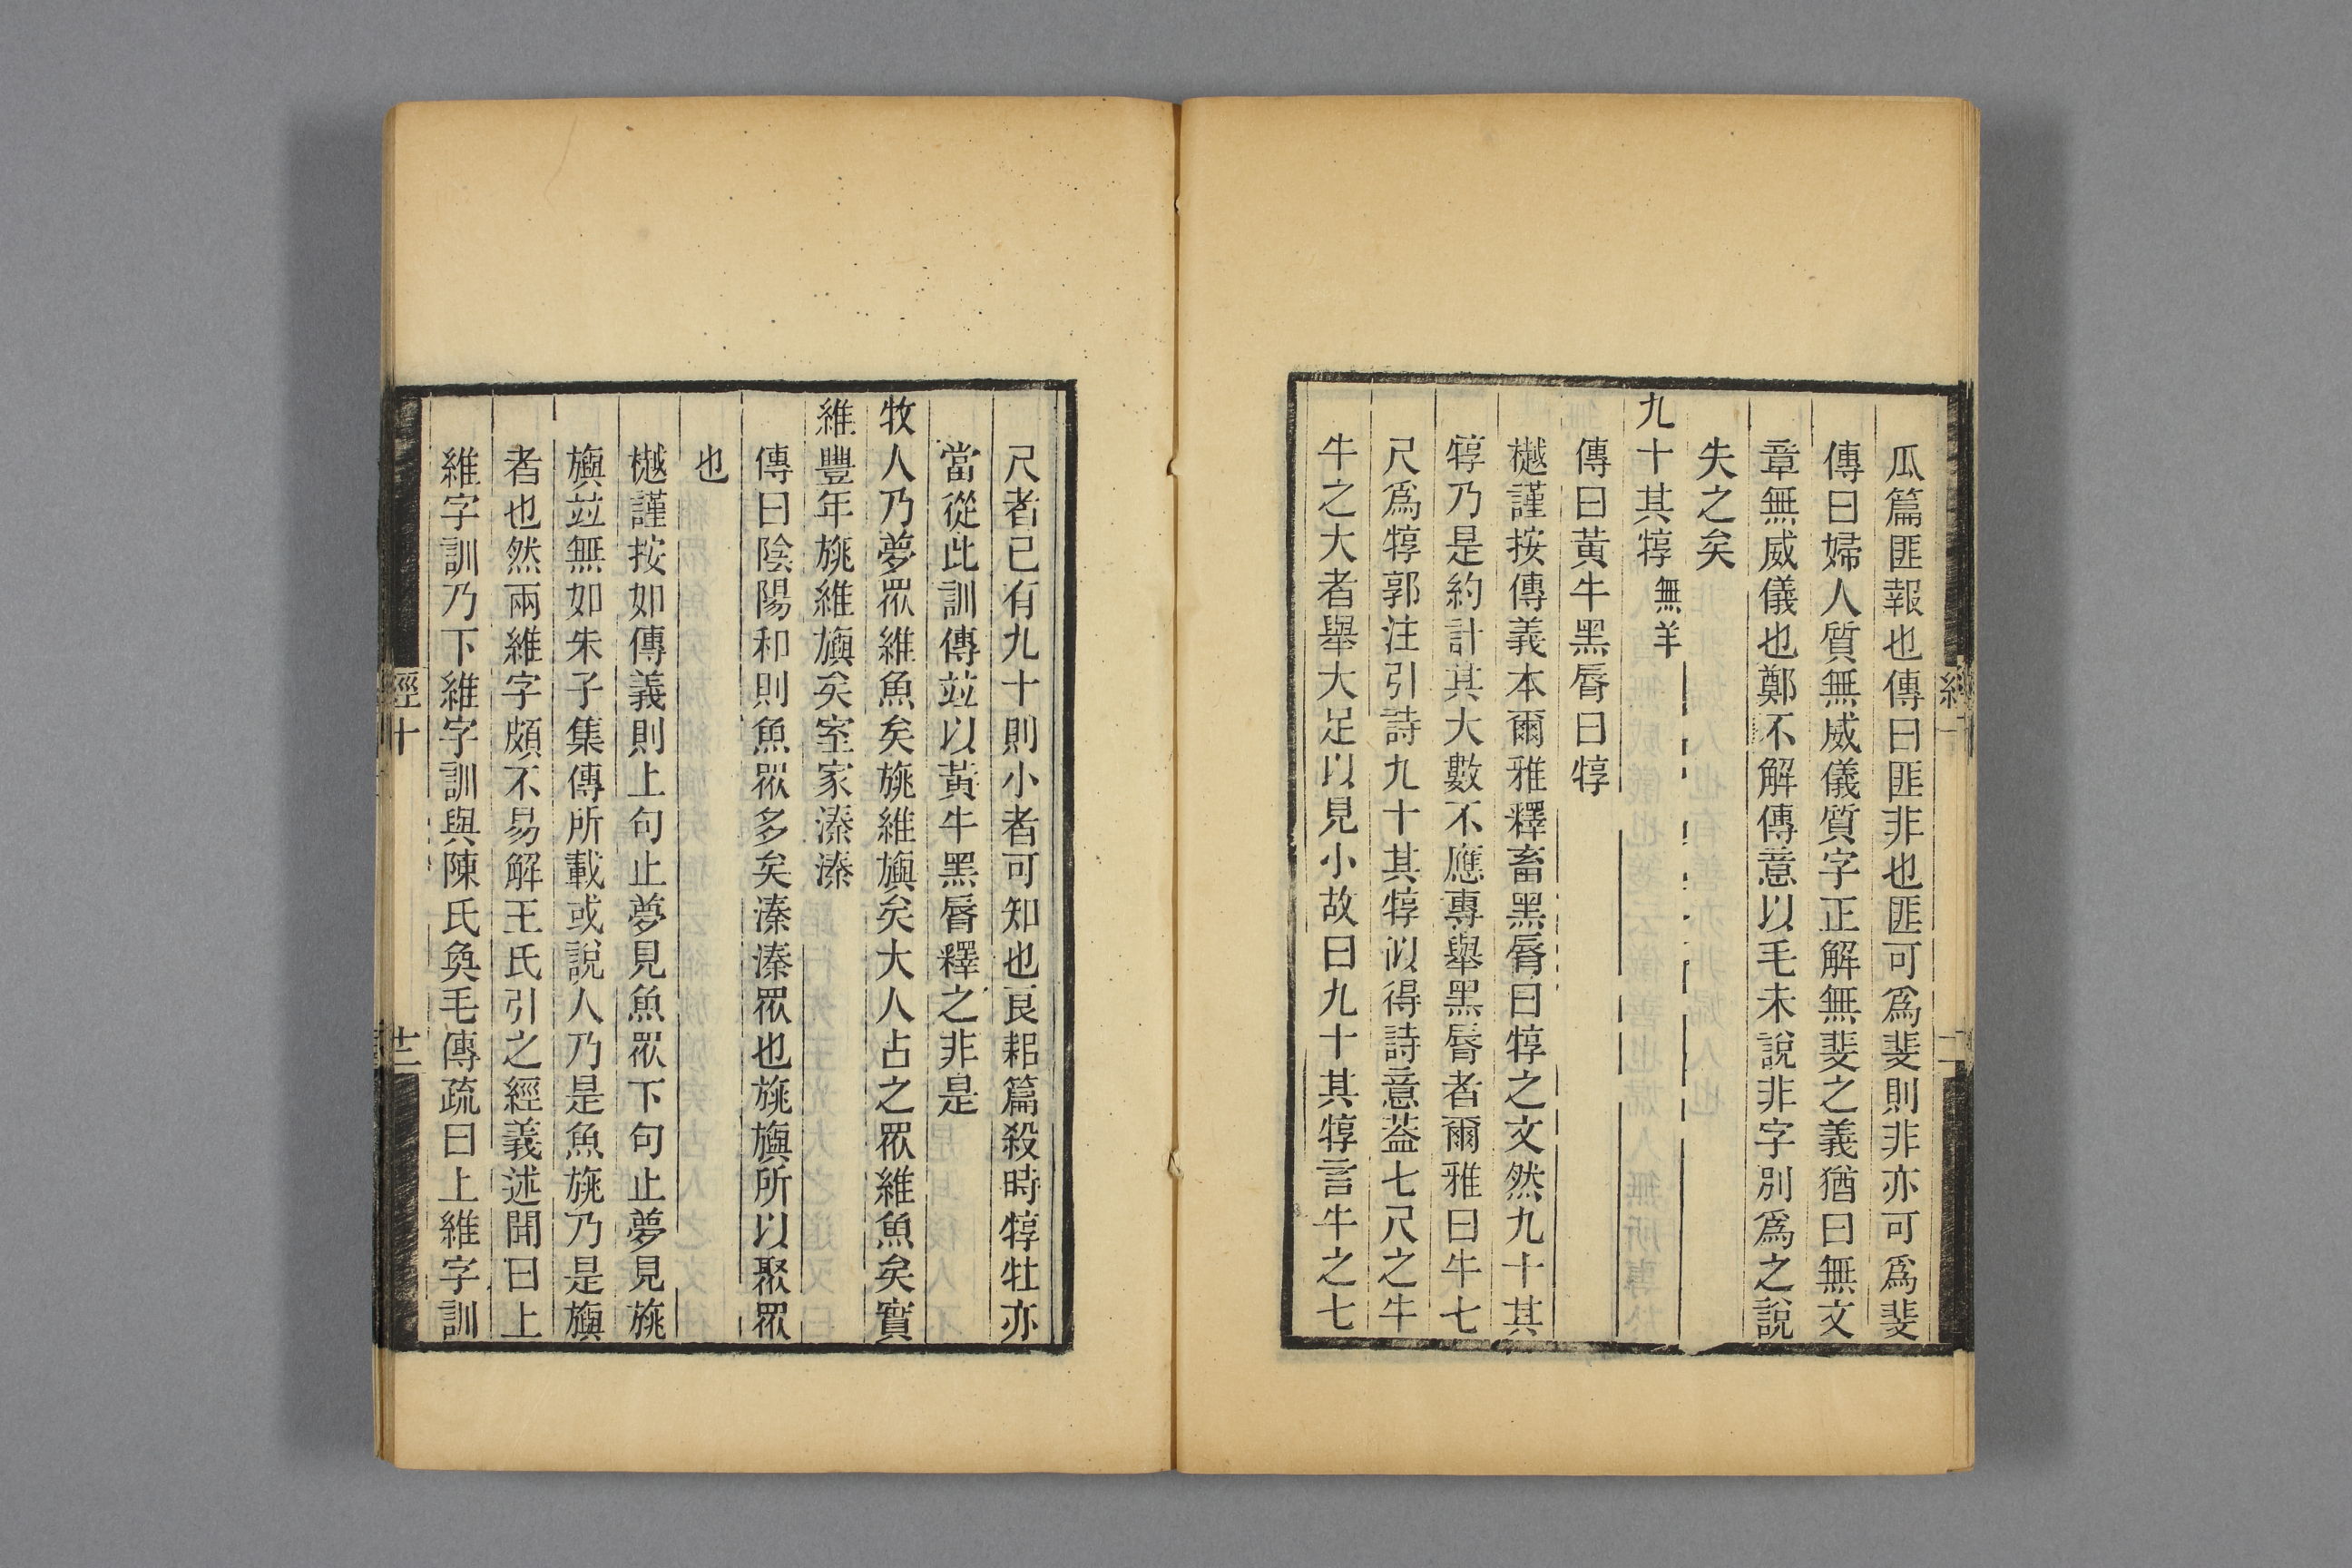 瓜篇匪報也傳曰匪非也匪可爲斐則非亦可爲斐
傳曰婦人質無威儀質字正解無斐之義猶曰無文
章無威儀也鄭不解傳意以毛未說非字別爲之說
失之矣
九十其犉 無羊
傳曰黃牛黑脣曰犉
樾謹按傳義本爾雅釋畜黑脣曰犉之文然九十其
犉乃是約計其大數不應專舉黑脣者爾雅曰牛七
尺爲犉郭注引詩九十其犉似得詩意葢七尺之牛
牛之大者舉大足以見小故曰九十其犉言牛之七
尺者已有九十則小者可知也良耜篇殺時犉牡亦
當從此訓傳竝以黃牛黑脣釋之非是
牧人乃夢眾維魚矣旐維旟矣大人占之眾維魚矣實
維豐年旐維旟矣室家溱溱
傳曰陰陽和則魚眾多矣溱溱眾也旐旟所以聚眾
也
樾謹按如傳義則上句止夢見魚眾下句止夢見旐
旟竝無如朱子集傳所載或說人乃是魚旐乃是旟
者也然兩維字頗不易解王氏引之經義述聞曰上
維字訓乃下維字訓與陳氏奐毛傳疏曰上維字訓
經十
十二